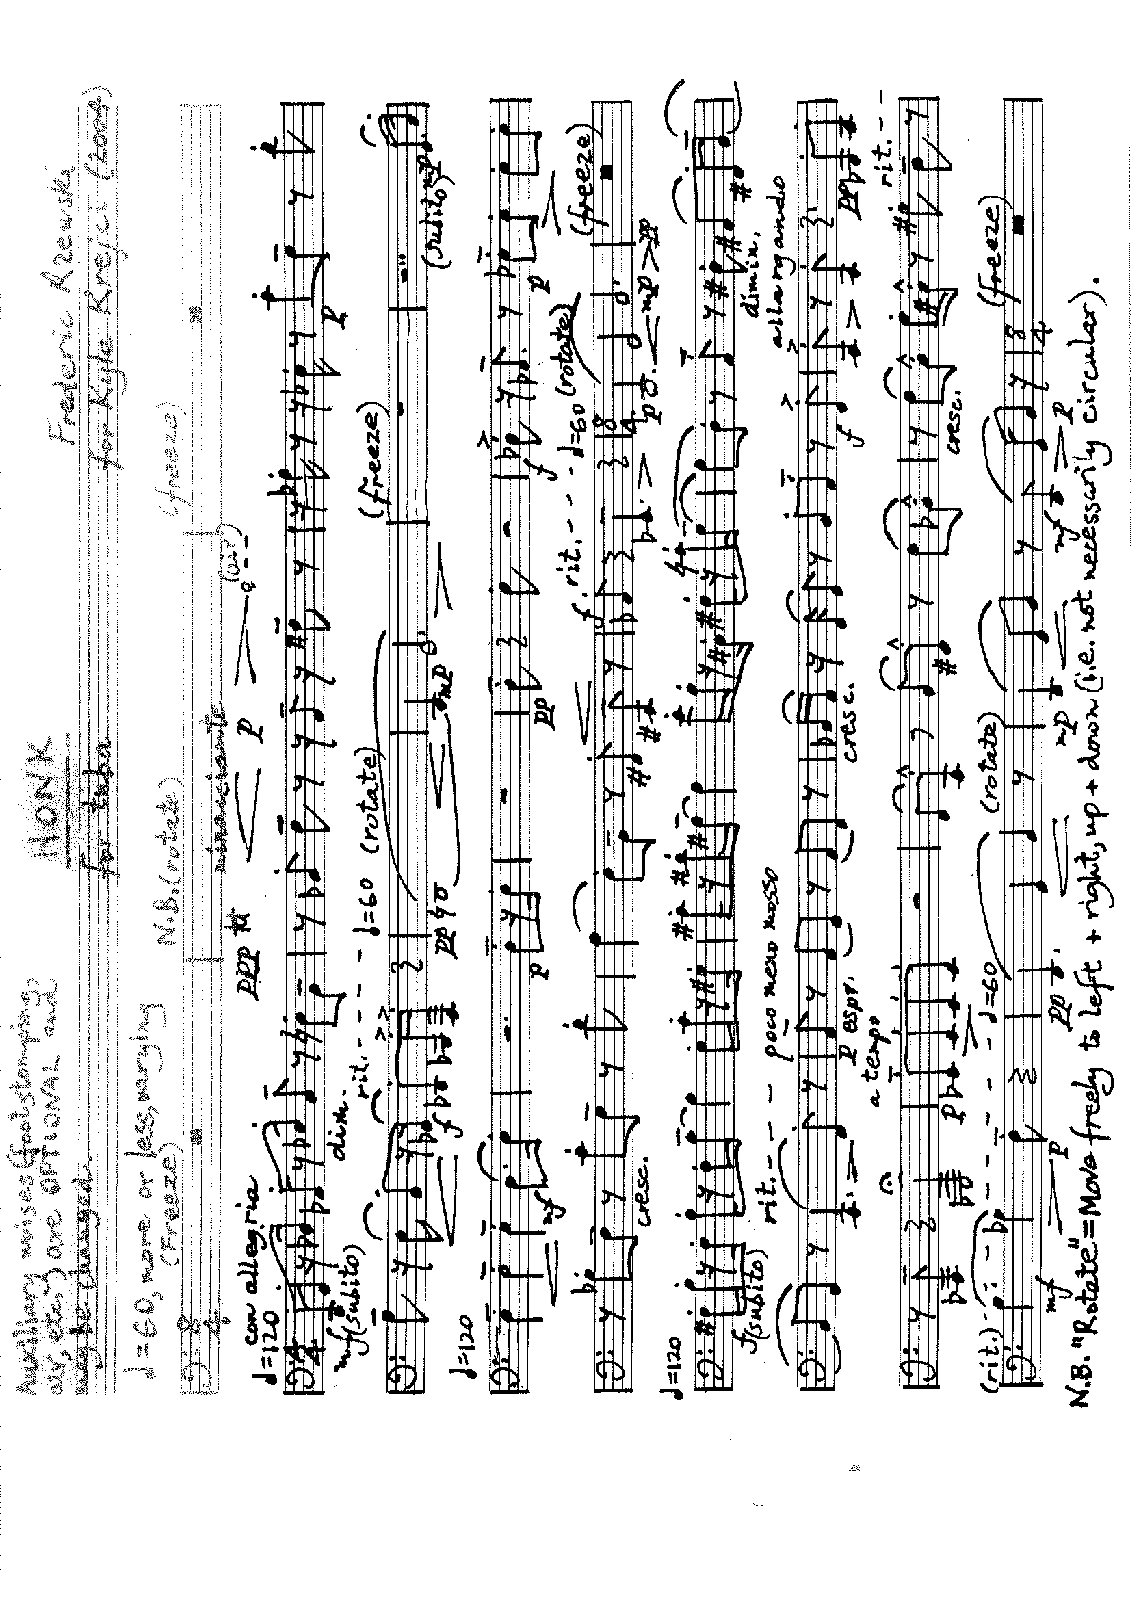 Auxiliary noises (foot stomping,
air, etc.) are OPTIONAL and
may be changed.
HONK
for tuba
Frederic Rzewski
for Kyle Krejci (2004)
♩=60, more or less, varying
(Freeze) N.B. (rotate) (freeze)
8
4
minacciante
PPP p (air)
con allegria
♩=120
4
4
mf (subito) dim. p
rit. - - - - ♩=60 (rotate) (freeze)
f pp mp (subito) mp
♩=120
mf p pp f p
cresc. f rit. - - - ♩=60 (rotate) (freeze)
8
4
p mp > pp
♩=120
f (subito) dimin.
rit. - - - poco meno mosso allargando
p espr. cresc. f pp
a tempo rit. - -
p cresc.
(rit.) - - - - - - - ♩=60 (rotate) (freeze)
8
4
mf p pp mp mf p
N.B. "Rotate" = Move freely to left + right, up + down (i.e. not necessarily circular).